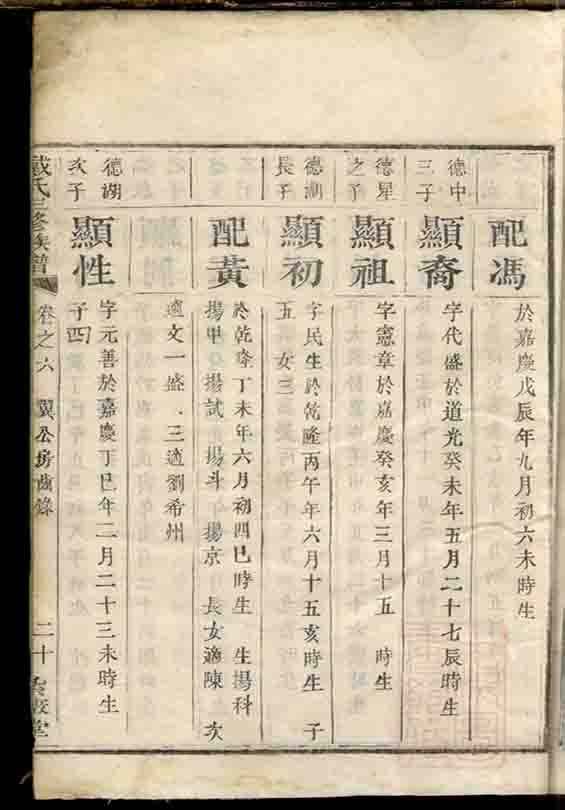 配馮
於嘉慶戊辰年九月初六未時生
德中
三子
顯裔
字代盛於道光癸未年五月二十七辰時生
德星
之子
顯祖
字憲章於嘉慶癸亥年三月十五 時生
德湖
長子
顯初
字民生於乾隆丙午年六月十五亥時生 子
五 女三
配黃
於乾隆丁未年六月初四巳時生 生揚科
揚甲 揚試 揚斗 揚京 長女適陳 次
適文一盛 三適劉希州
德湖
次子
顯性
字元善於嘉慶丁巳年二月二十三未時生
子四
戴氏三修族譜 卷之六 翼公房齒錄 二十